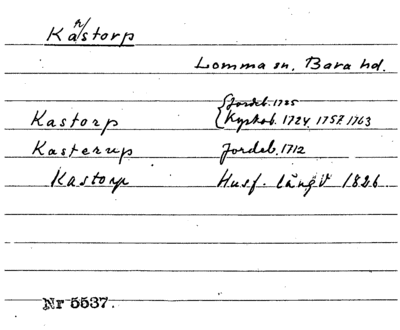 Ka/storp
Lomma sn. Bara hd.
Jordeb. 1725
Kastorp Kyrkob. 1724, 1757, 1763
Kasterup Jordeb. 1712
Kastorp Husf. längd 1826
Nr 5537.